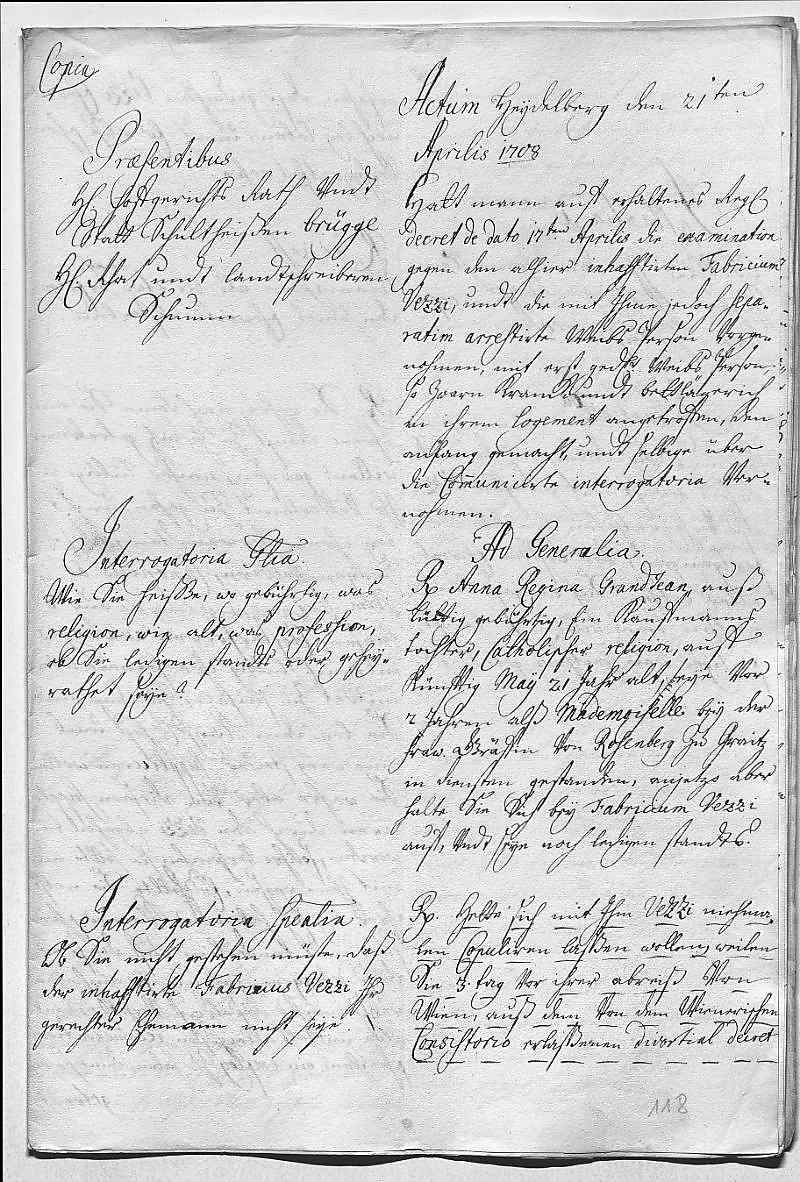 Copia
Actum Heydelberg den 21ten
Aprilis 1708
Præsentibus
H. Hoffgerichts Rath Undt
Statt Schultheißen brügge
H. Rhat undt landtschreiberen
Schumm
Hatt mann auß erhaltenes
decret de dato 17ten Aprilis die examination
gegen den alhier inhafftirten Fabricium
Vezzi, undt die mit Ihme jedoch sepa-
ratim arrestirte Weibs Person Vorge-
nohmen, mit erst ged. Weibs Person,
so Zwarn Kranck undt bettlägerich
in ihrem logement angetroffen, den
anfang gemacht, undt selbige über
die Communicirte interrogatoria Ver-
nohmen.
Interrogatoria Glia.
Wie Sie heiße, wo gebührtig, was
religion, wie alt, was profession,
ob Sie ledigen standts oder gehey-
rathet seye?
Ad Generalia.
Rx Anna Regina GrandJean auß
gebührtig, Ein Kauffmanns
tochter, Catholischer religion, auff
Künfftig May 21 Jahr alt, seye Vor
2 Jahren alß Mademoiselle bey der
fraw Gräffin Von Rosenberg Zu Graitz
in diensten gestanden, anjetzo aber
halte Sie Sich bey Fabricium Vezzi
auff, Undt seye noch ledigen standts.
Interrogatoria Spealia.
Ob Sie nicht gestehen müste, daß
der inhafftirte Fabricius Vezzi Ihr
gerechter Ehemann nicht seye
Rx. Hette sich mit Ihm Vezzi niehma-
len Copuliren laßen wollen, weilen
Sie 3. tag Vor ihrer abreiß Von
Wien, auß dem Von dem Wienerischen
Consistorio erlaßenen divortial decret
118